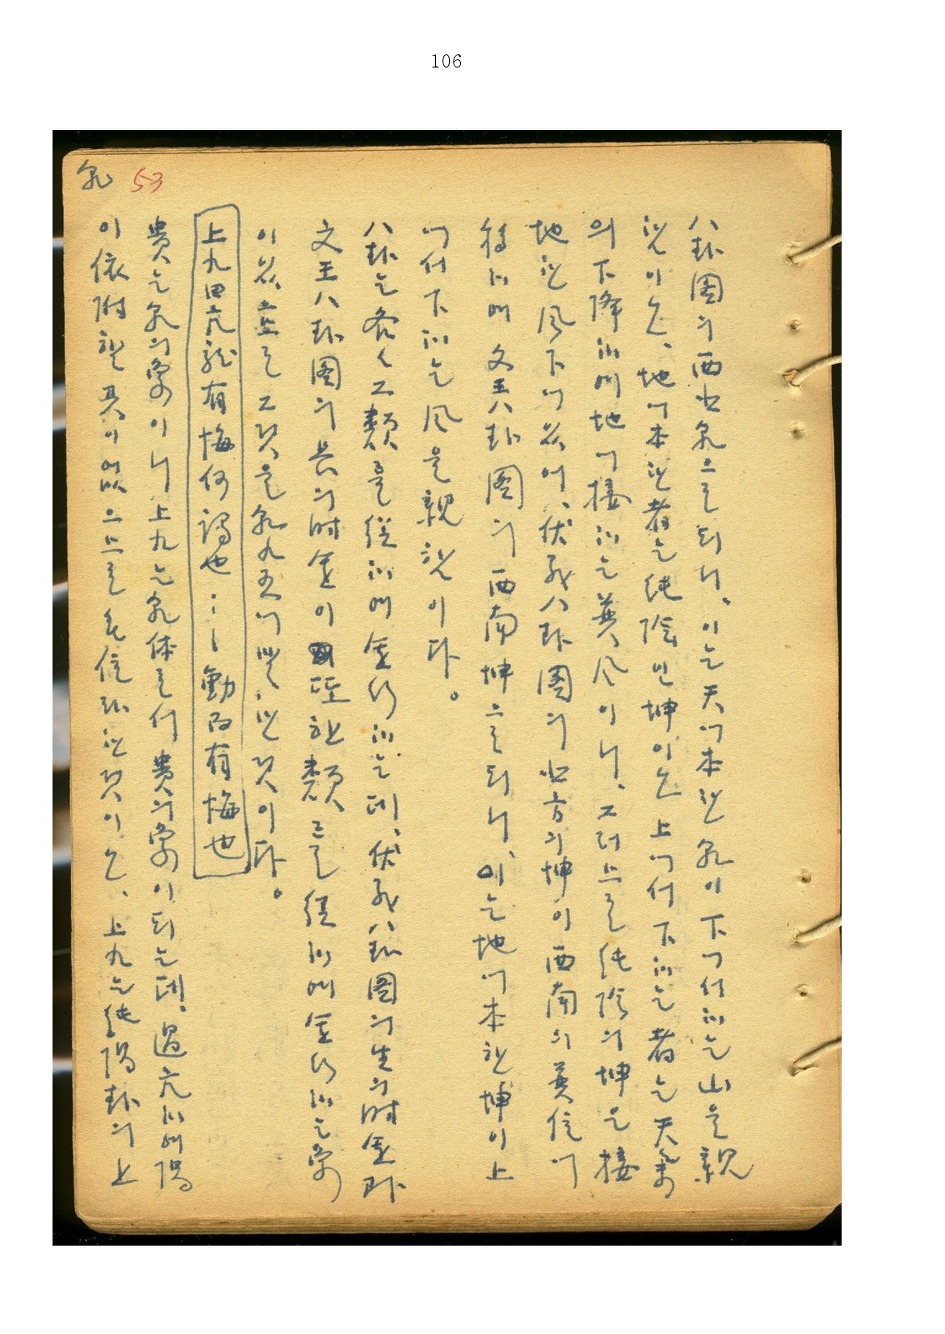 106
乾 53
八卦圖의 西北乾으로 되니, 이는 天에本한 乾이 下에서하는 山을 親
한이오, 地에本한者는 純陰인 坤이오 上에서 下하는 者는 天氣
의 下降하여 地에 接하는 巽風이니, 그러므로 純陰의 坤을 接
地한 風下에 있어, 伏羲八卦圖의 北方의 坤이 西南의 巽位에
移하여 文王八卦圖의 西南坤으로 되니 이는 地에本한 坤이 上
에서 下하는 風을 親한이다.
八卦는 各各 그 類를 從하여 運行하는데, 伏羲八卦圖의 生의時運과
文王八卦圖의 長의時運이 한 類로 從하여 運行하는 象
이 있으므로 그것을 乾九五에 말한것이다.
上九曰亢龍有悔何謂也…動而有悔也
貴는 乾의象이니 上九는 乾体로서 貴의象이 되는데, 過亢하여 陽
이 依附할 곳이 없으므로 无位라 한것이오, 上九는 純陽卦의 上